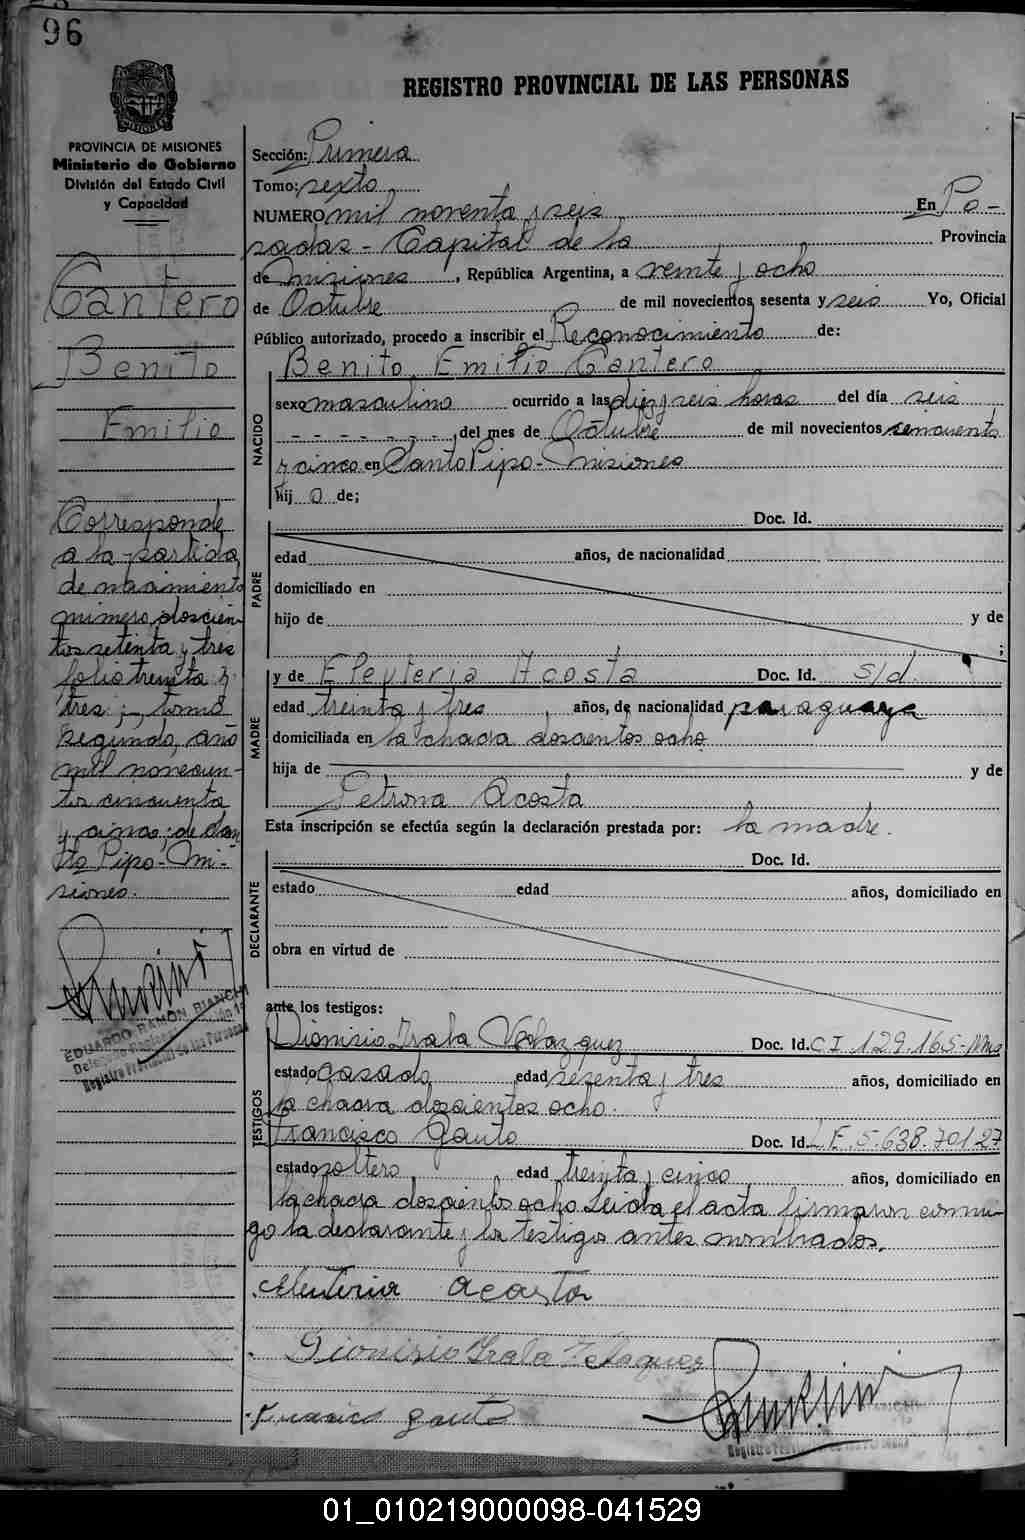 96
REGISTRO PROVINCIAL DE LAS PERSONAS
PROVINCIA DE MISIONES
Ministerio de Gobierno
División del Estado Civil
y Capacidad
Cantero
Benito
Emilio
Corresponde
a la partida
de nacimiento
número doscien
tos setenta y tres
folio treinta y
tres ; tomo
segundo, año
mil novecien-
tos cincuenta
y cinco; de San
to Pipo - Mi-
siones.
EDUARDO RAMON BIANCHI
Registro Provincial de las Personas
Sección: Primera
Tomo: sexto
NUMERO mil noventa y seis En Po-
sadas - Capital de la Provincia
de Misiones, República Argentina, a veinte y ocho
de Octubre de mil novecientos sesenta y seis Yo, Oficial
Público autorizado, procedo a inscribir el Reconocimiento de:
Benito Emilio Cantero
NACIDO
sexo masculino ocurrido a las diez y seis horas del día seis
- - - - - - -, del mes de Octubre de mil novecientos cincuenta
y cinco en Santo Pipo - Misiones
hij o de;
PADRE
Doc. Id.
edad años, de nacionalidad
domiciliado en
hijo de y de
;
MADRE
y de Eleuteria Acosta Doc. Id. s/d.
edad treinta y tres, años, de nacionalidad paraguaya
domiciliada en la chacra doscientos ocho
hija de y de
Petrona Acosta
Esta inscripción se efectúa según la declaración prestada por: la madre.
DECLARANTE
Doc. Id.
estado edad años, domiciliado en
obra en virtud de
ante los testigos:
TESTIGOS
Dionisio Irala Velazquez Doc. Id. C.I. 129.165-Mnes
estado casado edad sesenta y tres años, domiciliado en
la chacra doscientos ocho.
Francisco Gauto Doc. Id. L.E. 5.638.70127
estado soltero edad treinta y cinco años, domiciliado en
la chacra doscientos ocho Leida el acta firmaron conmi-
go la declarante y los testigos antes nombrados.
eleuteria acosta
Dionisio Irala Velasquez
gauto
01_010219000098-041529